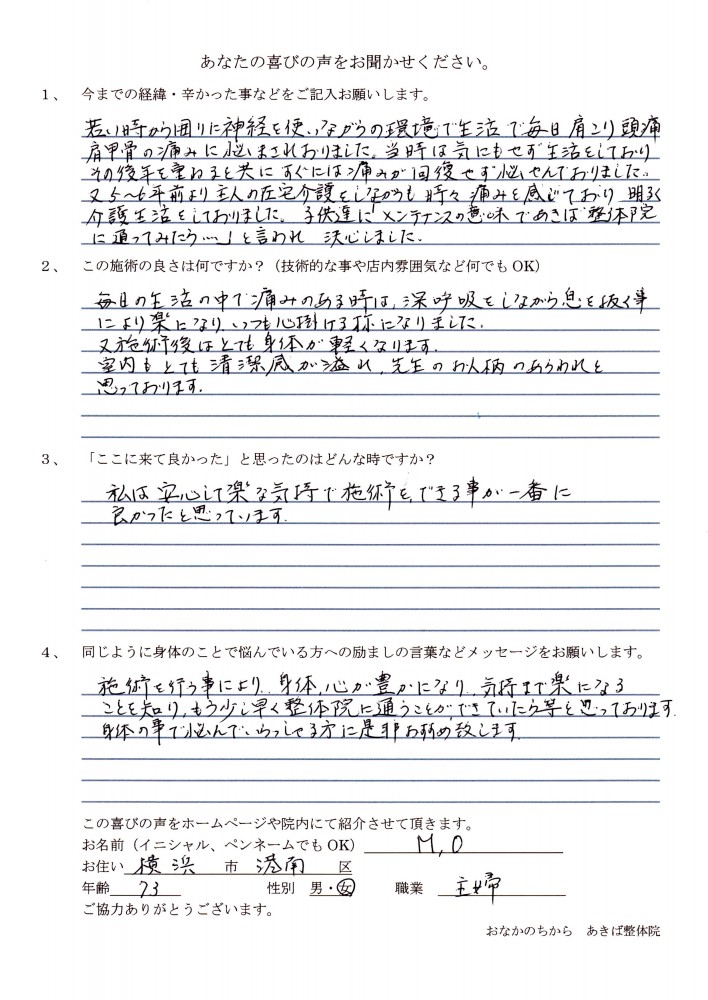 あなたの喜びの声をお聞かせください。
1、 今までの経緯・辛かった事などをご記入お願いします。
若い時から回りに神経を使いながらの環境で生活で毎日肩こり頭痛
肩甲骨の痛みに悩まされおりました。当時は気にもせず生活をしており
その後年を重ねると共にすぐには痛みが回復せず悩んでおりました。
又5〜6年前より主人の在宅介護をしながらも時々痛みを感じており 明るく
介護生活をしておりました。子供達に「メンテナンスの意味であきば整体院
に通ってみたら…」と言われ 決心しました。
2、 この施術の良さは何ですか？（技術的な事や店内雰囲気など何でもOK）
毎日の生活の中で痛みのある時は、深呼吸をしながら息を抜く事
により楽になり、いつも心掛ける様になりました。
又施術後はとても身体が軽くなります。
室内もとても清潔感が溢れ、先生のお人柄のあらわれと
思っております。
3、 「ここに来て良かった」と思ったのはどんな時ですか？
私は安心して楽な気持で施術を、できる事が一番に
良かったと思っています。
4、 同じように身体のことで悩んでいる方への励ましの言葉などメッセージをお願いします。
施術を行う事により、身体、心が豊かになり、気持まで楽になる
ことを知り、もう少し早く整体院に通うことができていたら等と思っております。
身体の事で悩んでいらっしゃる方に是非おすすめ致します。
この喜びの声をホームページや院内にて紹介させて頂きます。
お名前（イニシャル、ペンネームでもOK） M,O
お住い 横浜 市 港南 区
年齢 73 性別 男・女 職業 主婦
ご協力ありがとうございます。
おなかのちから あきば整体院